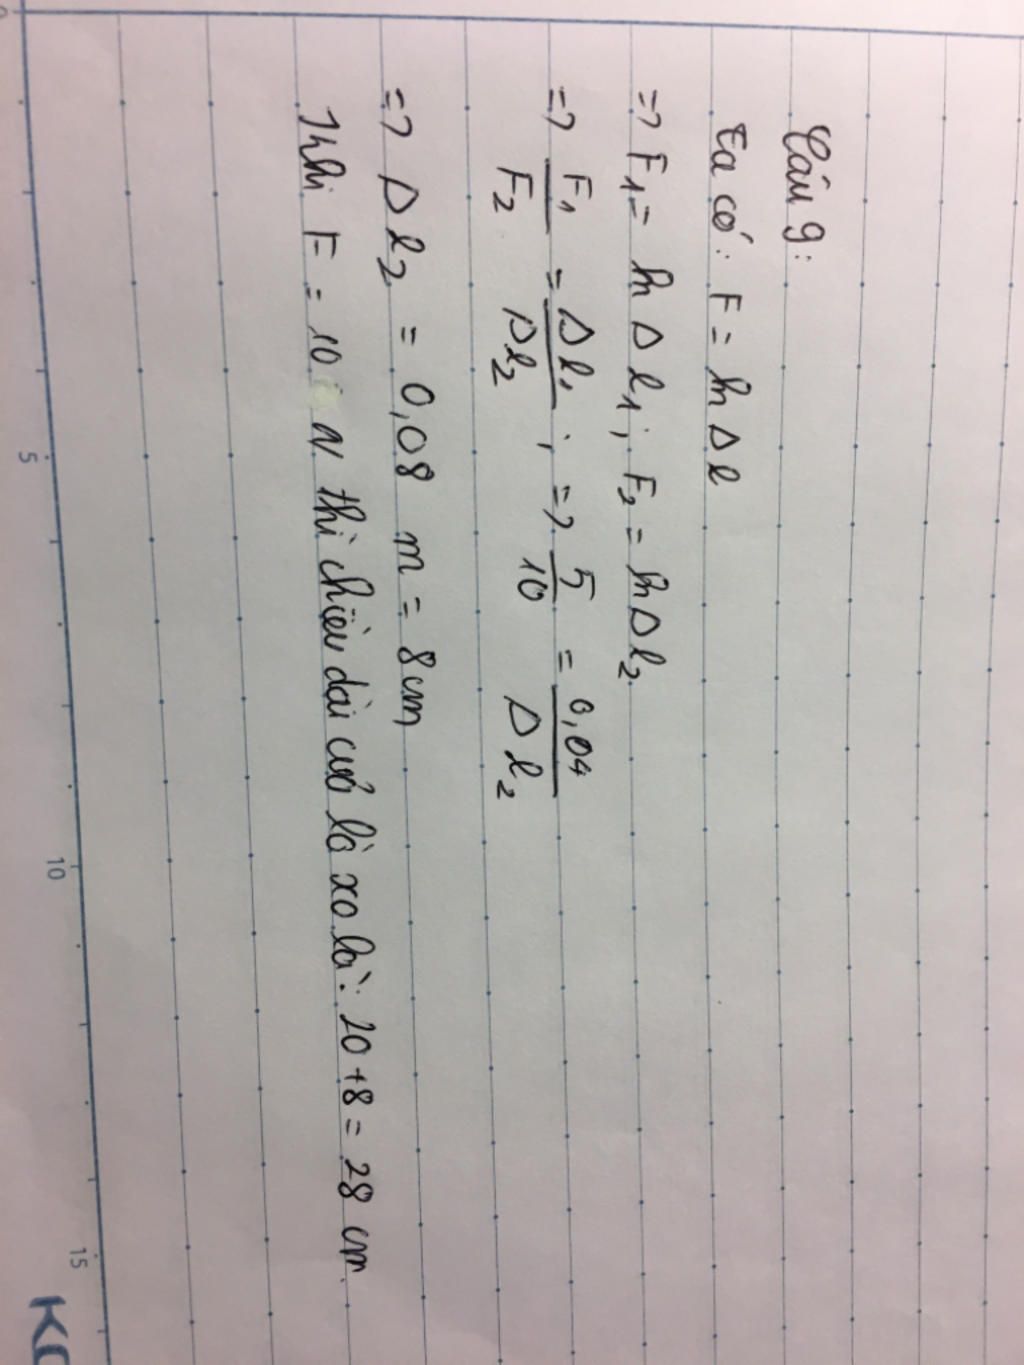 Câu 9:
Ta có: F = k Δl
=> F₁ = k Δl₁; F₂ = k Δl₂
=> F₁/F₂ = Δl₁/Δl₂; => 5/10 = 0,04/Δl₂
=> Δl₂ = 0,08 m = 8cm
Khi F = 10 N thì chiều dài của lò xo là: 20 + 8 = 28 cm.
5
10
15